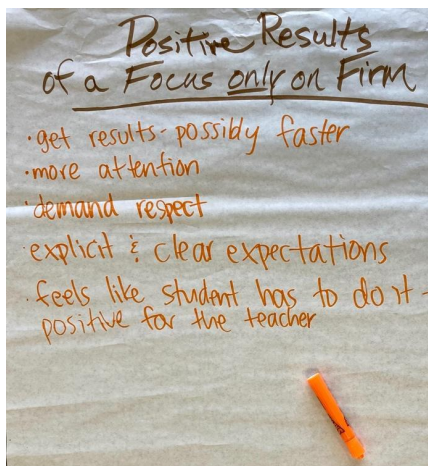 Positive Results
of a Focus only on Firm
·get results - possibly faster
·more attention
·demand respect
·explicit & clear expectations
·feels like student has to do it -
positive for the teacher